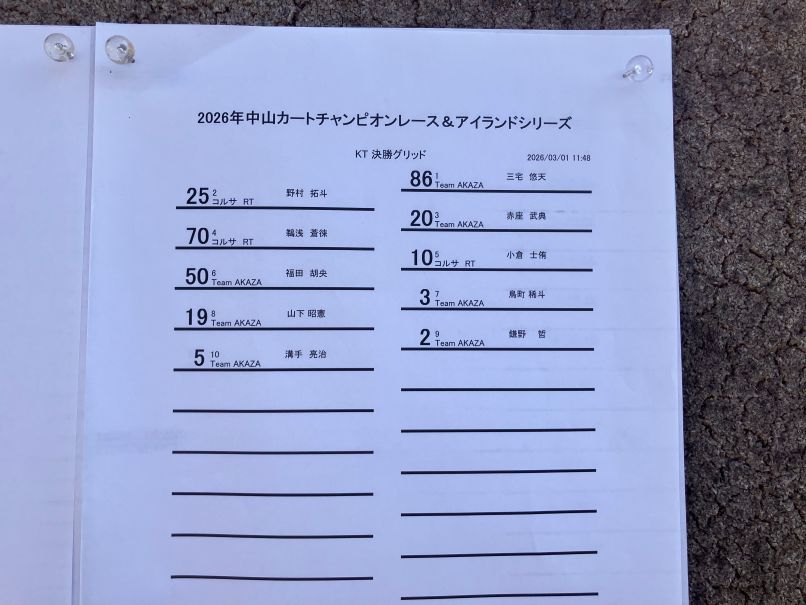 2026年中山カートチャンピオンレース＆アイランドシリーズ
KT 決勝グリッド
2026/03/01 11:48
86 1 三宅 悠天
Team AKAZA
25 2 野村 拓斗
コルサ RT
20 3 赤座 武典
Team AKAZA
70 4 鵜浅 蒼徠
コルサ RT
10 5 小倉 士侑
コルサ RT
50 6 福田 胡央
Team AKAZA
3 7 鳥町 稀斗
Team AKAZA
19 8 山下 昭憲
Team AKAZA
2 9 鎌野 哲
Team AKAZA
5 10 溝手 亮治
Team AKAZA